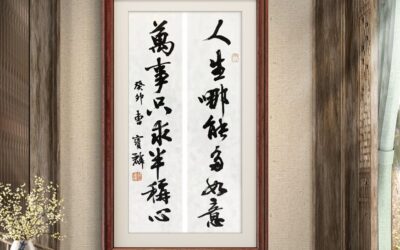 人生哪能多如意
萬事只求半稱心
癸卯曹寶麟